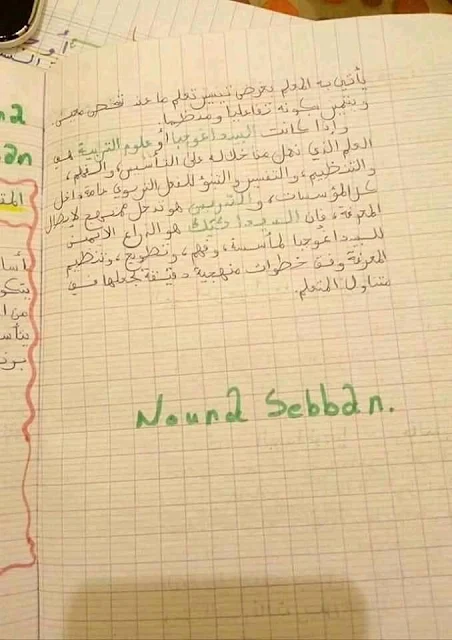 يأتي به المعلم بغرض تيسير تعلم ما عند شخص معين.
ويتميز بكونه تفاعليا ومنظما.
وإذا كانت البيداغوجيا أو علوم التربية هي
العلم الذي نعمل من خلاله على التأسيس، والتعلم،
والتنظيم، والتفسير والتنبؤ للفعل التربوي عامة داخل
كل المؤسسات، والتدريس هو تدخل ممنهج لإيصال
المعرفة، فإن الديداكتيك هو الذراع الأيمن
للبيداغوجيا لمأسسة، وفهم، وتطويع، وتنظيم
المعرفة وفق خطوات منهجية دقيقة يجعلها في
متناول المتعلم.
Nouna Sebban.